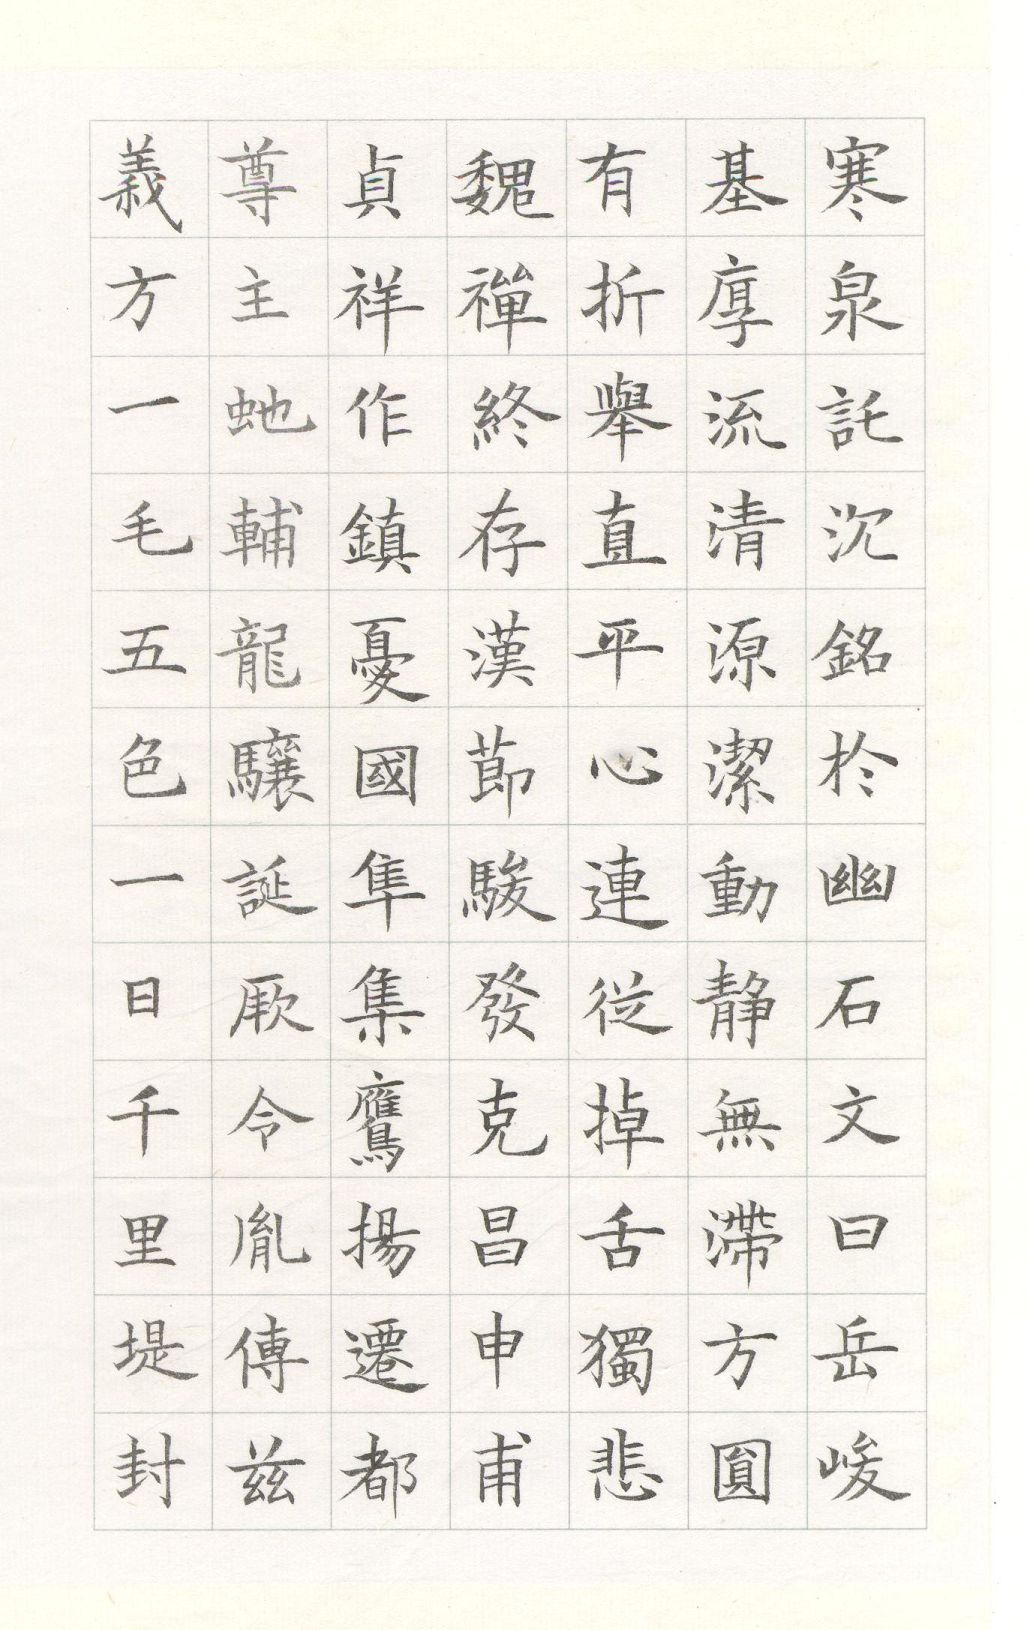 寒泉託沉銘於幽石文曰岳峻
基厚流清源潔動静無滯方圓
有折舉直平心連從掉舌獨悲
魏禪終存漢節駿發克昌申甫
貞祥作鎮憂國隼集鷹揚遷都
尊主虵輔龍驤誕厥令胤傳茲
義方一毛五色一日千里堤封